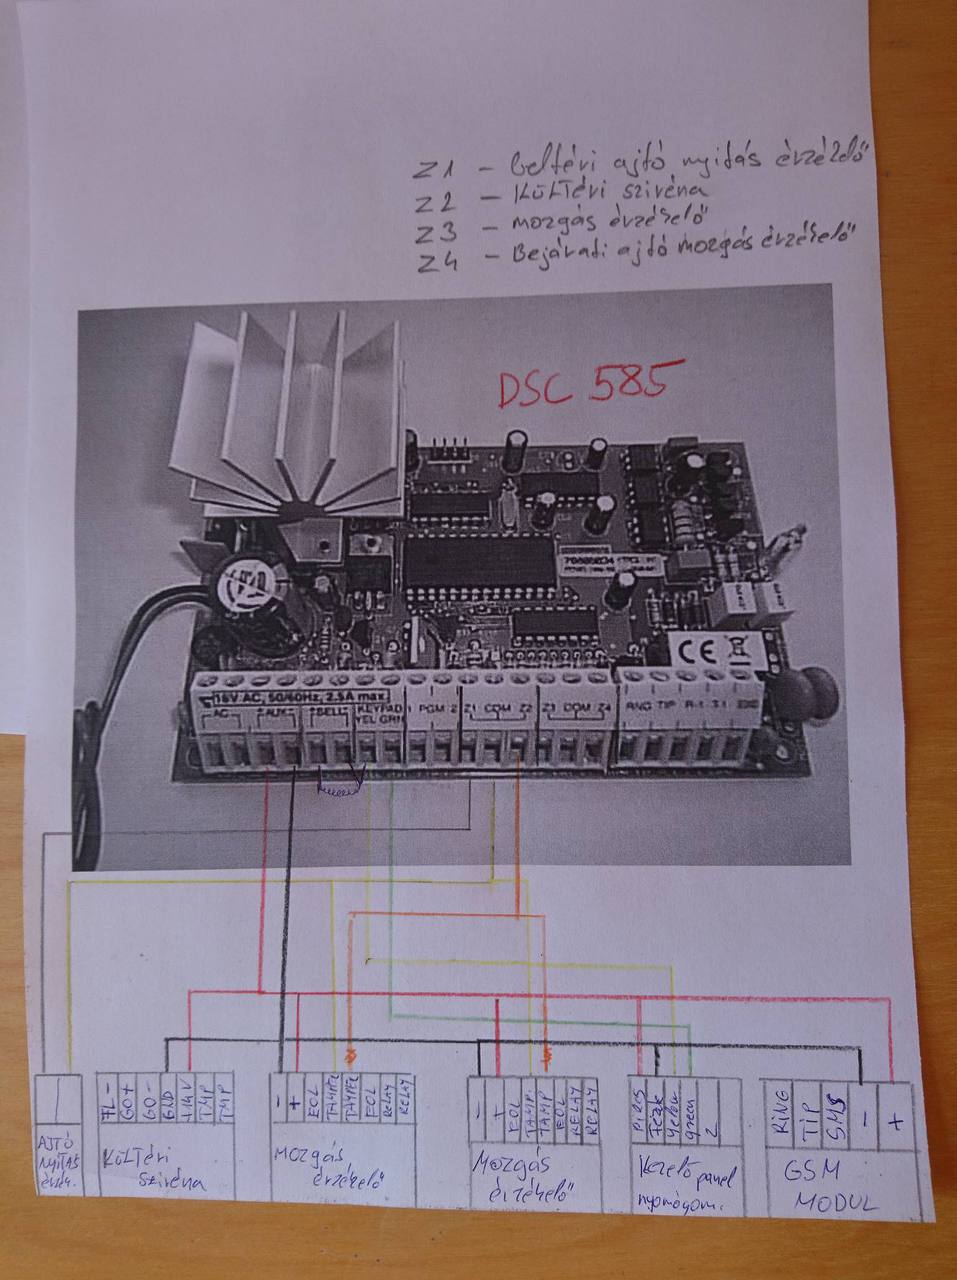 Z1 - beltéri ajtó nyitás érzékelő
Z2 - Kültéri sziréna
Z3 - mozgás érzékelő
Z4 - Bejárati ajtó mozgás érzékelő
DSC 585
CE
16V AC, 50/60Hz, 2.5A max.
AC AUX BELL KEYPAD 1 PGM 2 Z1 COM Z2 Z3 COM Z4 RNG TIP R-1 T-1
YEL GRN
AJTÓ
NYITÁS
FL-
GO+
GO-
GND
TMP
TMP
Kültéri
Sziréna
-
+
EOL
TAMPER
TAMPER
EOL
RELAY
RELAY
Mozgás
érzékelő
-
+
EOL
TAMP.
TAMP
EOL
RELAY
RELAY
Mozgás
érzékelő
Piros
Fekete
green
Z
Kezelő panel
nyomógom.
RING
TIP
SMS
-
+
GSM
MODUL